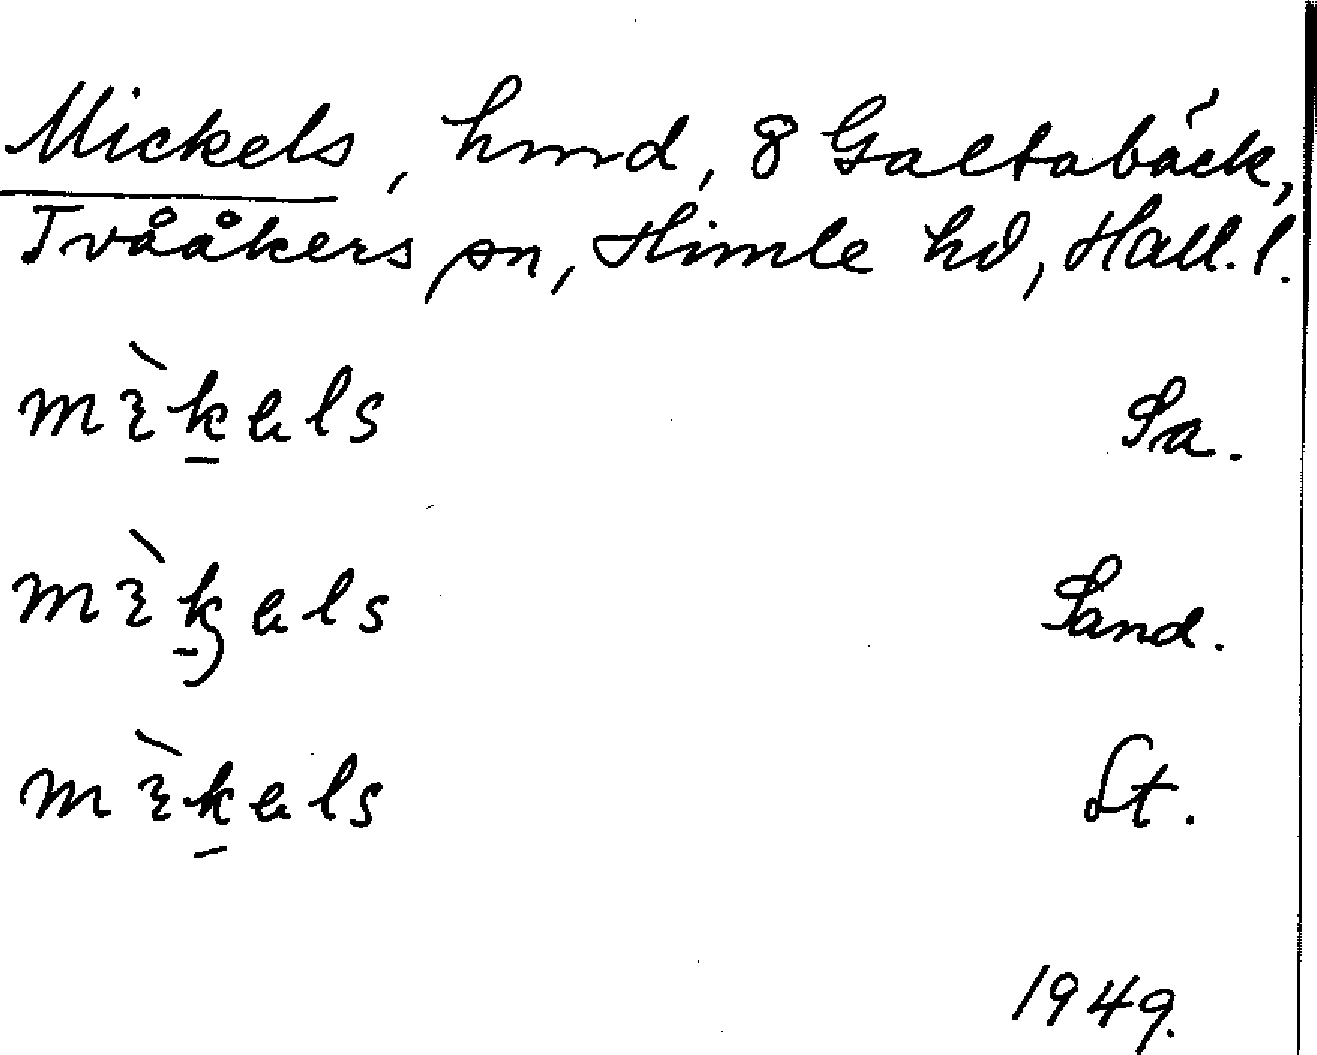 Mickels, hmd, 8 Galtabäck,
Tvååkers sn, Himle hd, Hall. l.
mɩ̀k̠əls Sa.
mɩ̀k̠əls Sand.
mɩ̀k̠əls St.
1949.